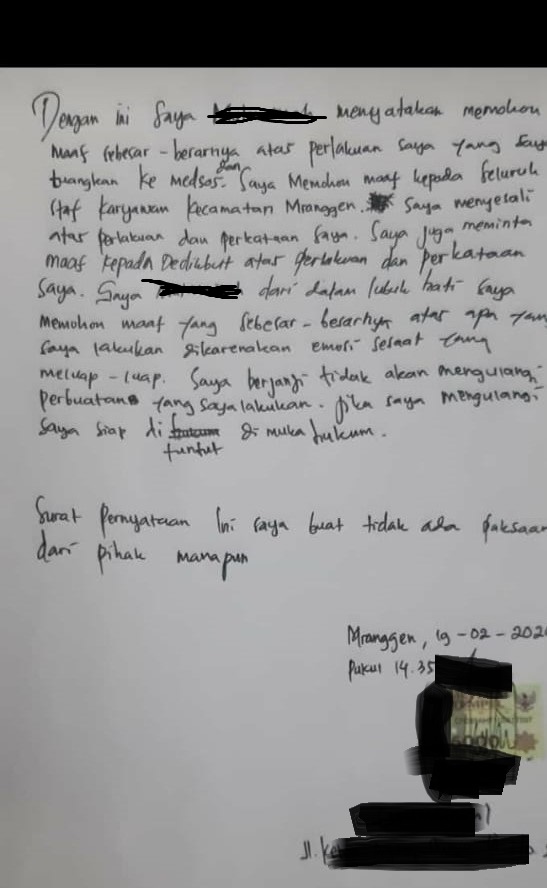 Dengan ini Saya menyatakan memohon
maaf sebesar-besarnya atas perlakuan saya yang saya
buangkan ke medsos. dan Saya Memohon maaf kepada seluruh
staf karyawan Kecamatan Mranggen. Saya menyesali
atas perlakuan dan perkataan saya. Saya juga meminta
maaf kepada atas perlakuan dan perkataan
saya. Saya dari dalam lubuk hati saya
memohon maaf yang sebesar-besarnya atas apa yang
saya lakukan dikarenakan emosi sesaat yang
meluap-luap. Saya berjanji tidak akan mengulangi
perbuatan yang saya lakukan. Jika saya mengulangi
saya siap di tuntut di muka hukum.
Surat Pernyataan Ini saya buat tidak ada paksaan
dari pihak manapun
Mranggen, 19-02-202
Pukul 14.35
Jl.